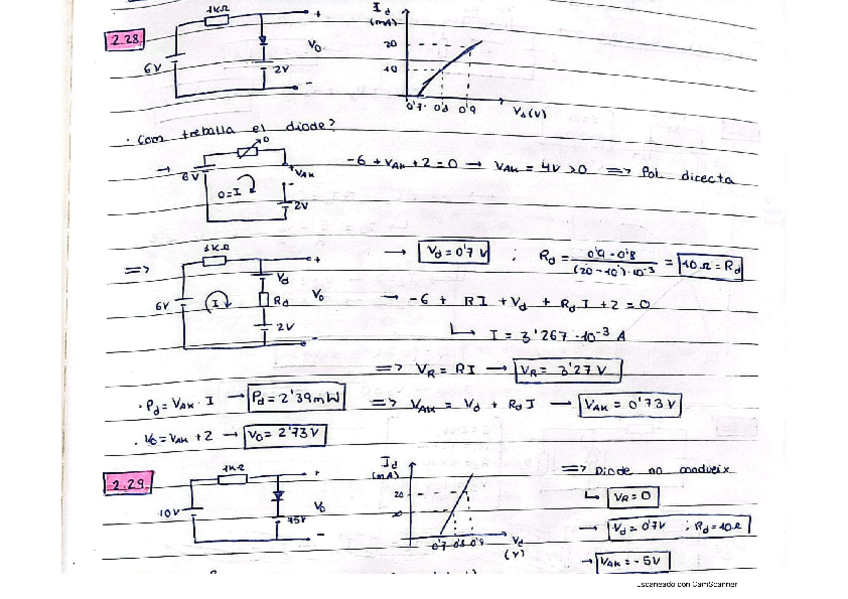 2.28
1KΩ
6V
2V
+
Vo
-
Id
(mA)
20
10
0'7 0'8 0'9
Vd (V)
· Com treballa el díode?
→ 6V 0=I 0 +VAK - 2V
-6 + VAK + 2 = 0 → VAK = 4V > 0 => Pol. directa
=> 6V 1KΩ I Vd Rd 2V + Vo -
→ Vd = 0'7 V ; Rd = (0'9 - 0'8) / (20 - 10)·10⁻³ = 10 Ω = Rd
→ -6 + RI + Vd + Rd I + 2 = 0
↳ I = 3'267 · 10⁻³ A
=> VR = RI → VR = 3'27 V
· Pd = VAK · I → Pd = 2'39 mW
=> VAK = Vd + Rd I → VAK = 0'73 V
· Vo = VAK + 2 → Vo = 2'73 V
2.29
1KΩ
10V
15V
+
Vo
-
Id
(mA)
20
0'7 0'8 0'9
Vd
(V)
=> Diode no condueix
↳ VR = 0
→ Vd = 0'7V ; Rd = 10Ω
→ VAK = -5V
Escaneado con CamScanner